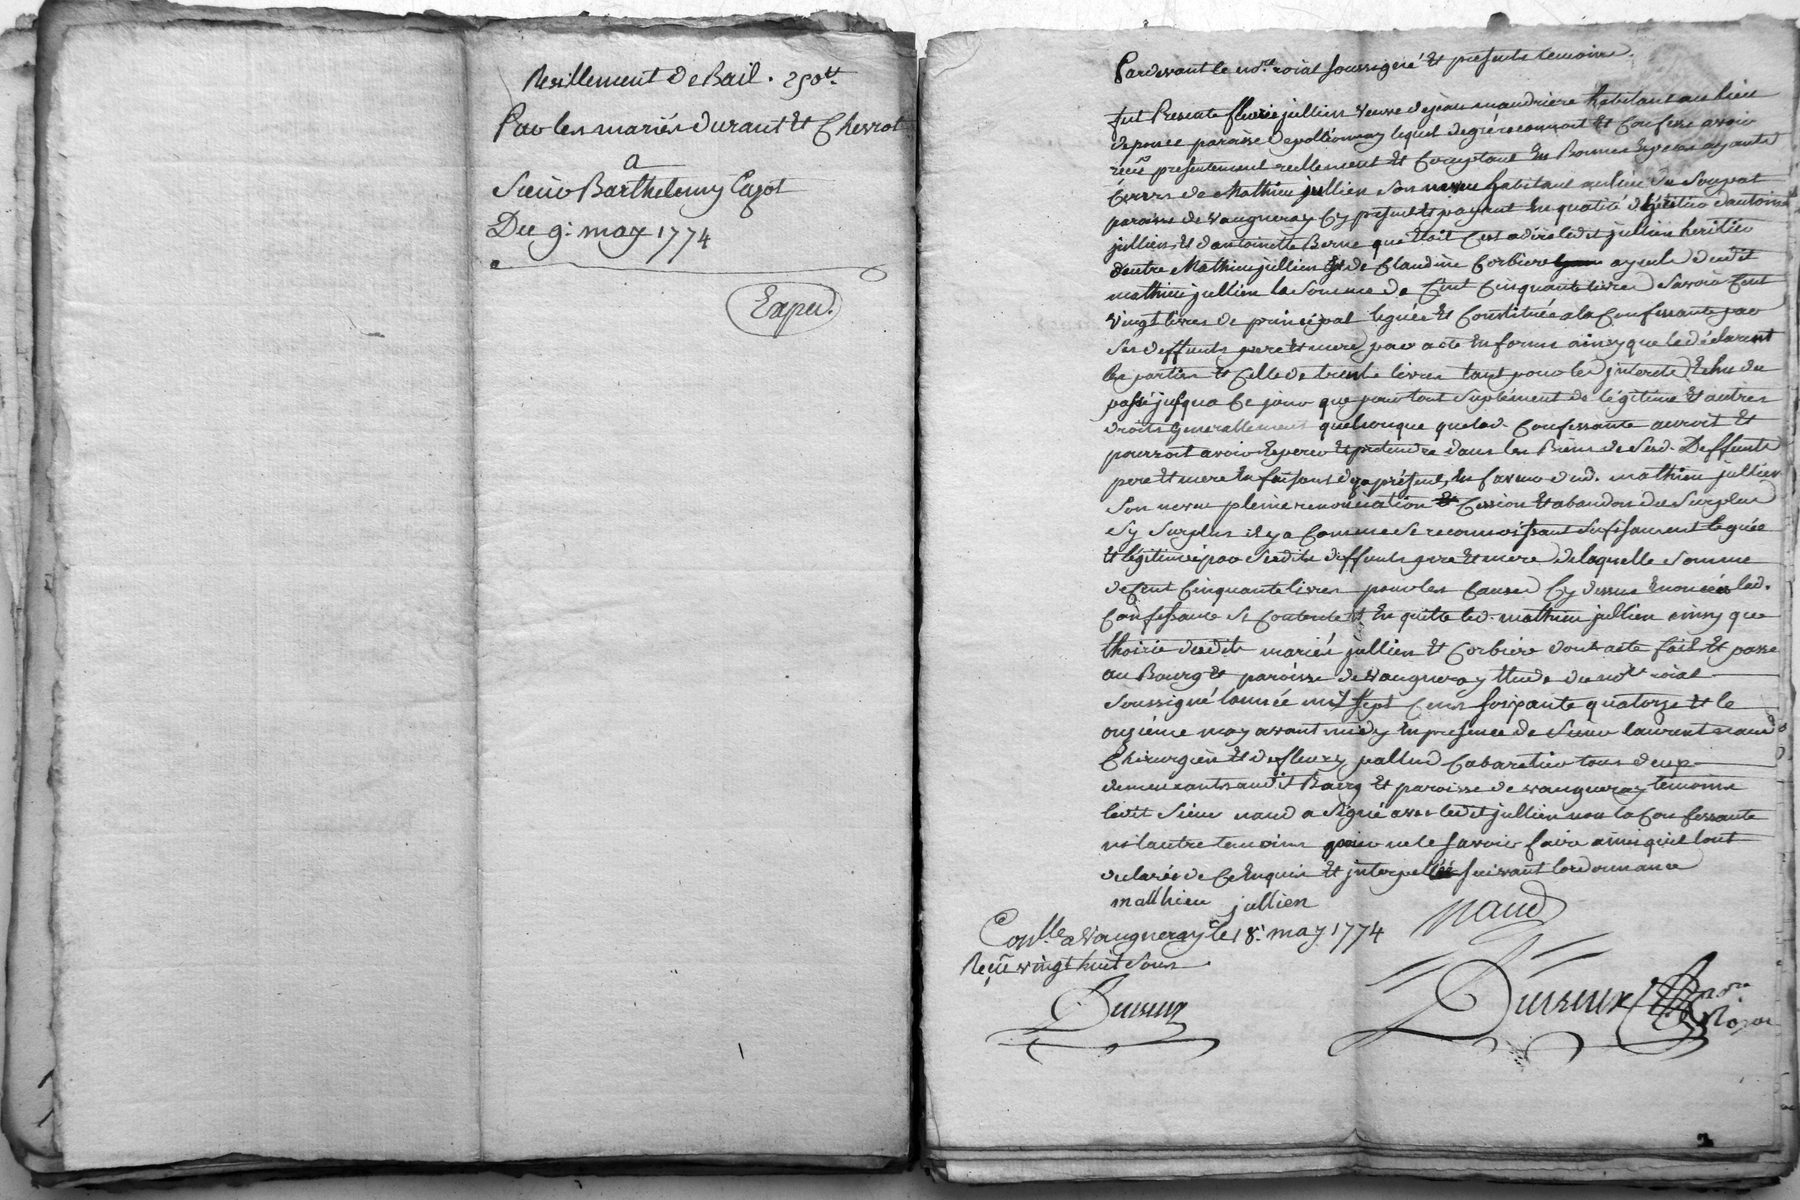 Resillement de Bail. 290tt
Par les mariés durant et Chevrot
a
Sieur Barthelemy Cazot
Du 9: may 1774
Exped.
Pardevant le nore roial soussigné et presents temoins
fut Presente fleurie jullien veuve de jean mandriere habitant au lieu
de paroisse de pollionnay lequel de gré reconnoit et Confesse avoir
reçu presentement reellement et Comptant En Bonnes Especes ayants
Cours de Mathieu jullien son neveu habitant au lieu du
paroisse de vaugneray Cy present et payant En qualité d'heritier d'antoine
jullien et d'antoinette Berne que étoit C'est a dire ledit jullien heritier
d'autre Mathieu jullien et de Claudine Corbiere ayeuls dudit
mathieu jullien la Somme de Cent Cinquante livres Savoir Cent
vingt livres de principal leguée et Constituée a la Confessante par
Ses deffunts pere et mere par acte En forme ainsy que le déclarent
les parties et Celle de trente livres tant pour les interets Echu du
passé jusqua Ce jour que pour tout suplément de légitime et autres
droits Generallement quelsonque que lad. Confessante auroit et
pourroit avoir Esperer et pretendre dans les Biens de Sesd. Deffunts
pere et mere En faisant dez a présent, En faveur dud. mathieu jullien
Son neveu pleine renonciation et Cession et abandon du Surplus
Sy Surplus il y a Comme Se reconnoissant Sufisament leguée
et légitimée par Sesdits deffunts pere et mere de laquelle Somme
de Cent Cinquante livres pour les Causes Cy dessus Enoncées lad.
Confessante Se Contente et En quitte led. mathieu jullien ainsy que
l'hoirie desdits mariés jullien et Corbiere dont acte fait et passé
au Bourg et paroisse de vaugneray Etude du nore roial
Soussigné l'année mil Sept Cens soixante quatorze et le
onzieme may avant midy En presence de Sieur laurent naud
Chirurgien et de fleury pallud Cabaretier tous deux
demeurants audit Bourg et paroisse de vaugneray temoins
ledit Sieur naud a Signé avec ledit jullien non la Confessante
ni l'autre temoins pour ne le Savoir faire ainsi qu'il l'ont
declaré de Ce Enquis et interpellés suivant l'ordonnance
mathieu jullien
naud
Conlle a vaugneray le 18: may 1774
Reçu vingt huit Sous